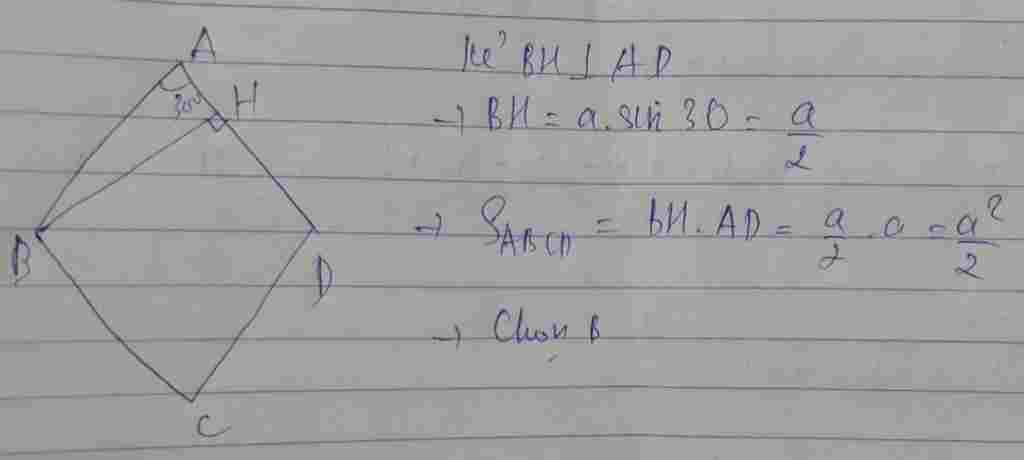 A
30°
H
B
D
C
Kẻ BH ⊥ AD
→ BH = a. sin 30 = a/2
→ S_ABCD = BH. AD = a/2 . a = a²/2
→ Chọn B